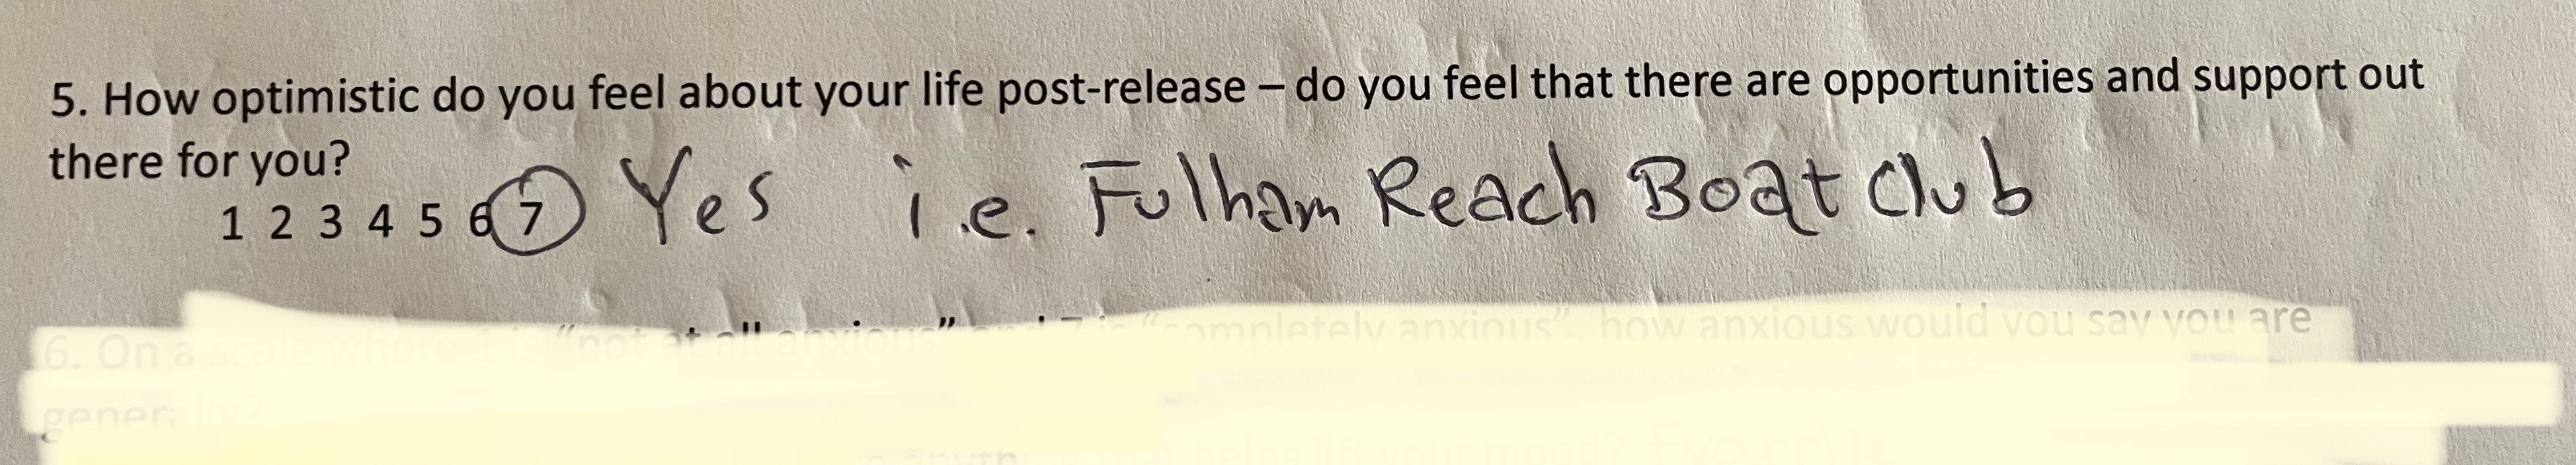 5. How optimistic do you feel about your life post-release – do you feel that there are opportunities and support out
there for you?
1 2 3 4 5 6 7 Yes i.e. Fulham Reach Boat Club
6. On a scale where is “not at all anxious” and 7 is “completely anxious”, how anxious would you say you are
generally?
helps lift your mood?